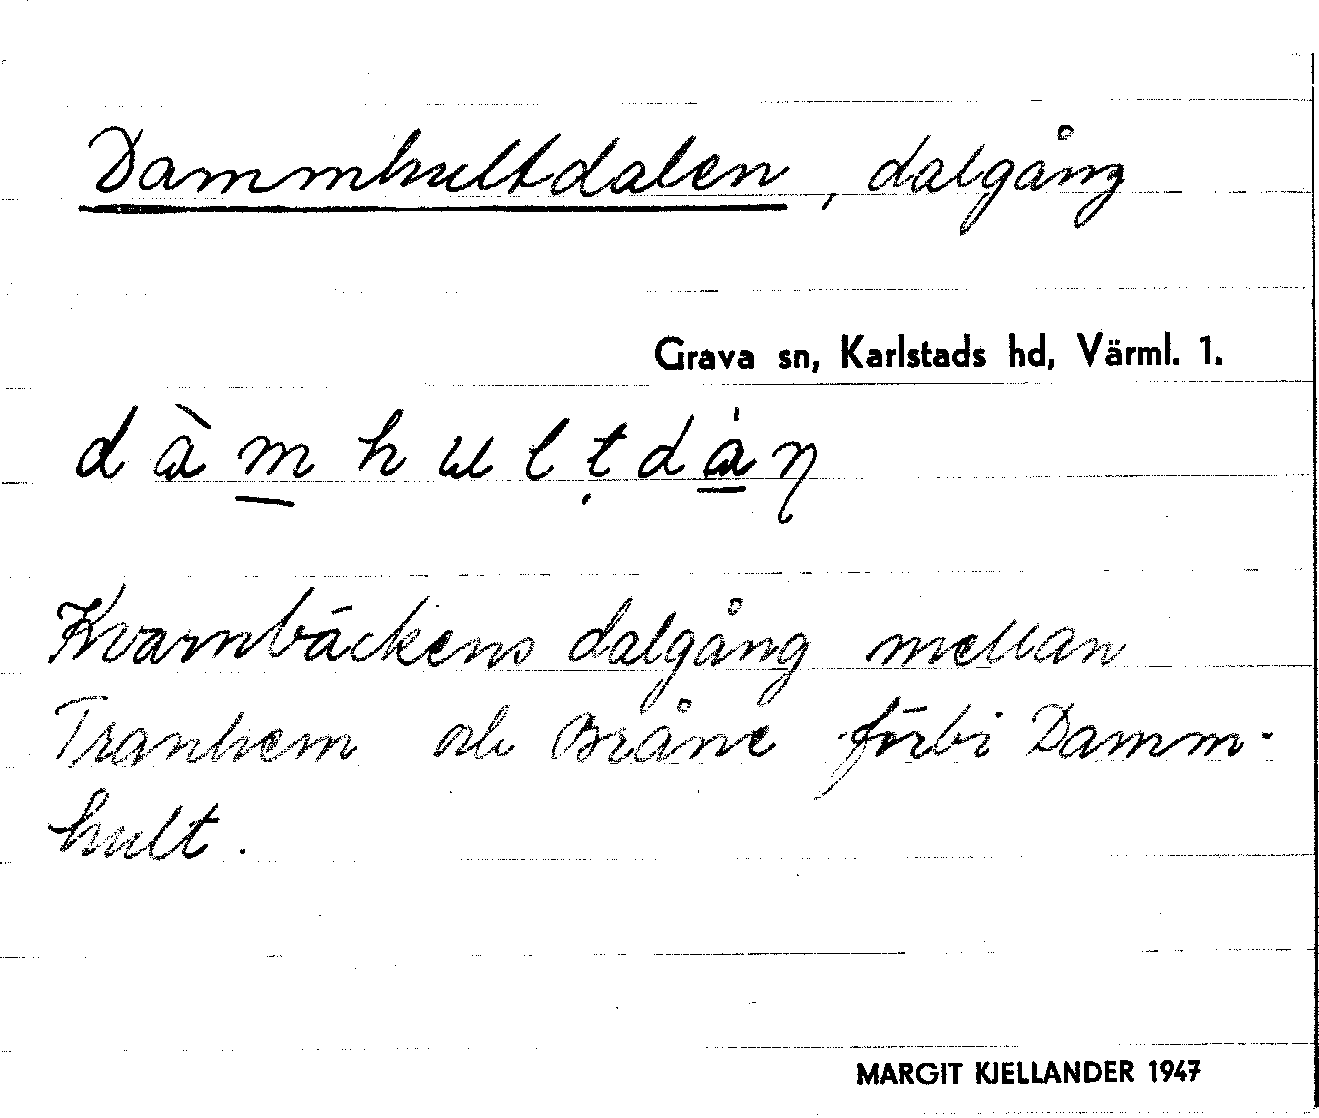 Dammhultdalen, dalgång
Grava sn, Karlstads hd, Värml. 1.
dàm̲hulṭdà̲ŋ
Kvarnbäckens dalgång mellan
Tranhem och Bråne förbi Damm-
hult.
MARGIT KJELLANDER 1947